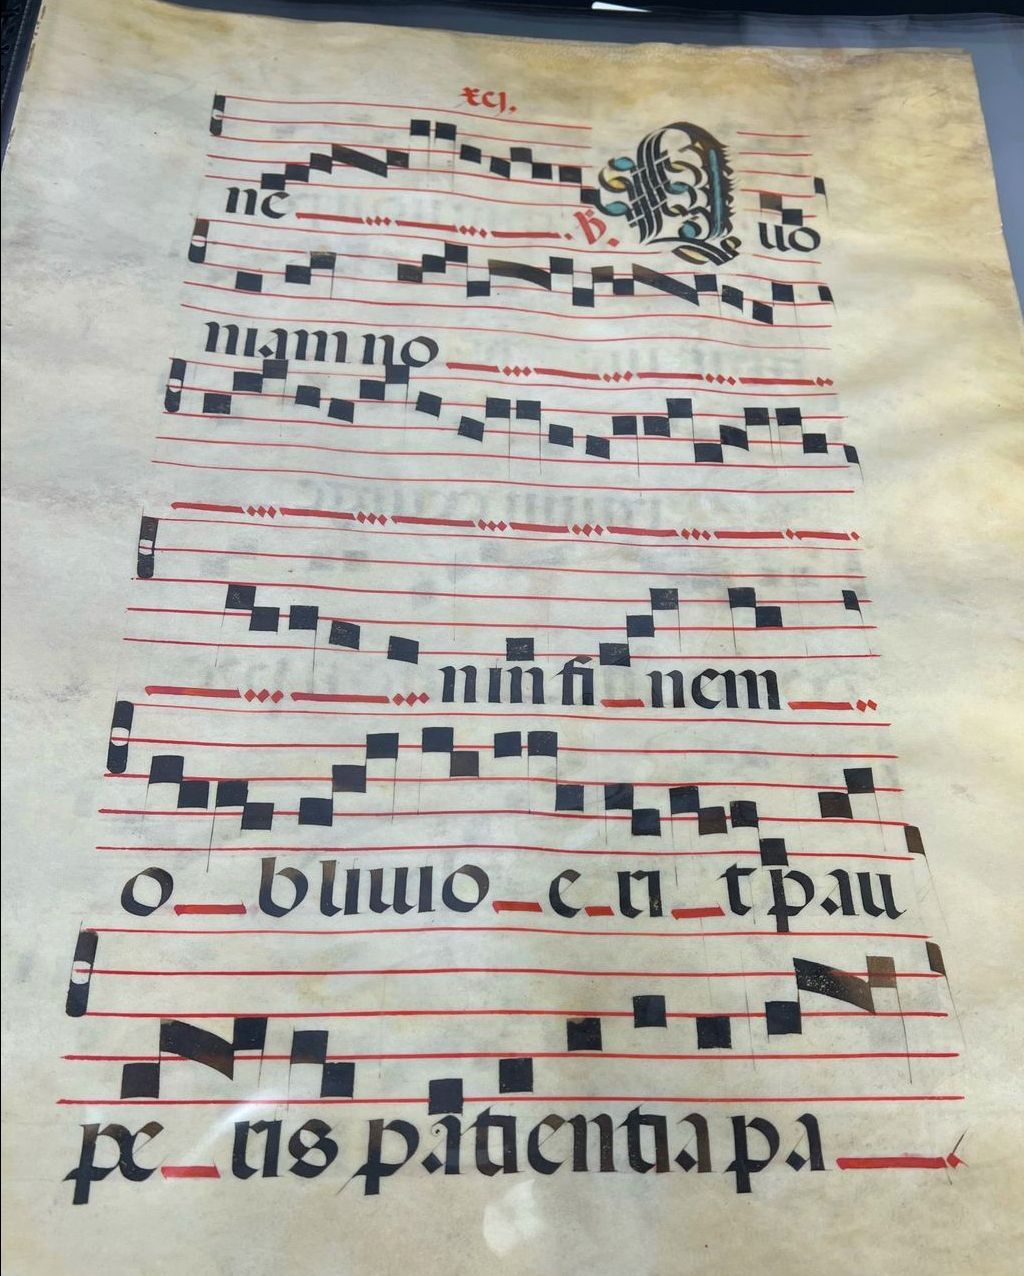 xcj.
ne ꝟ. Quo
niam no
nin fi nem
o bliuio e ri t pau
pe ris patientia pa